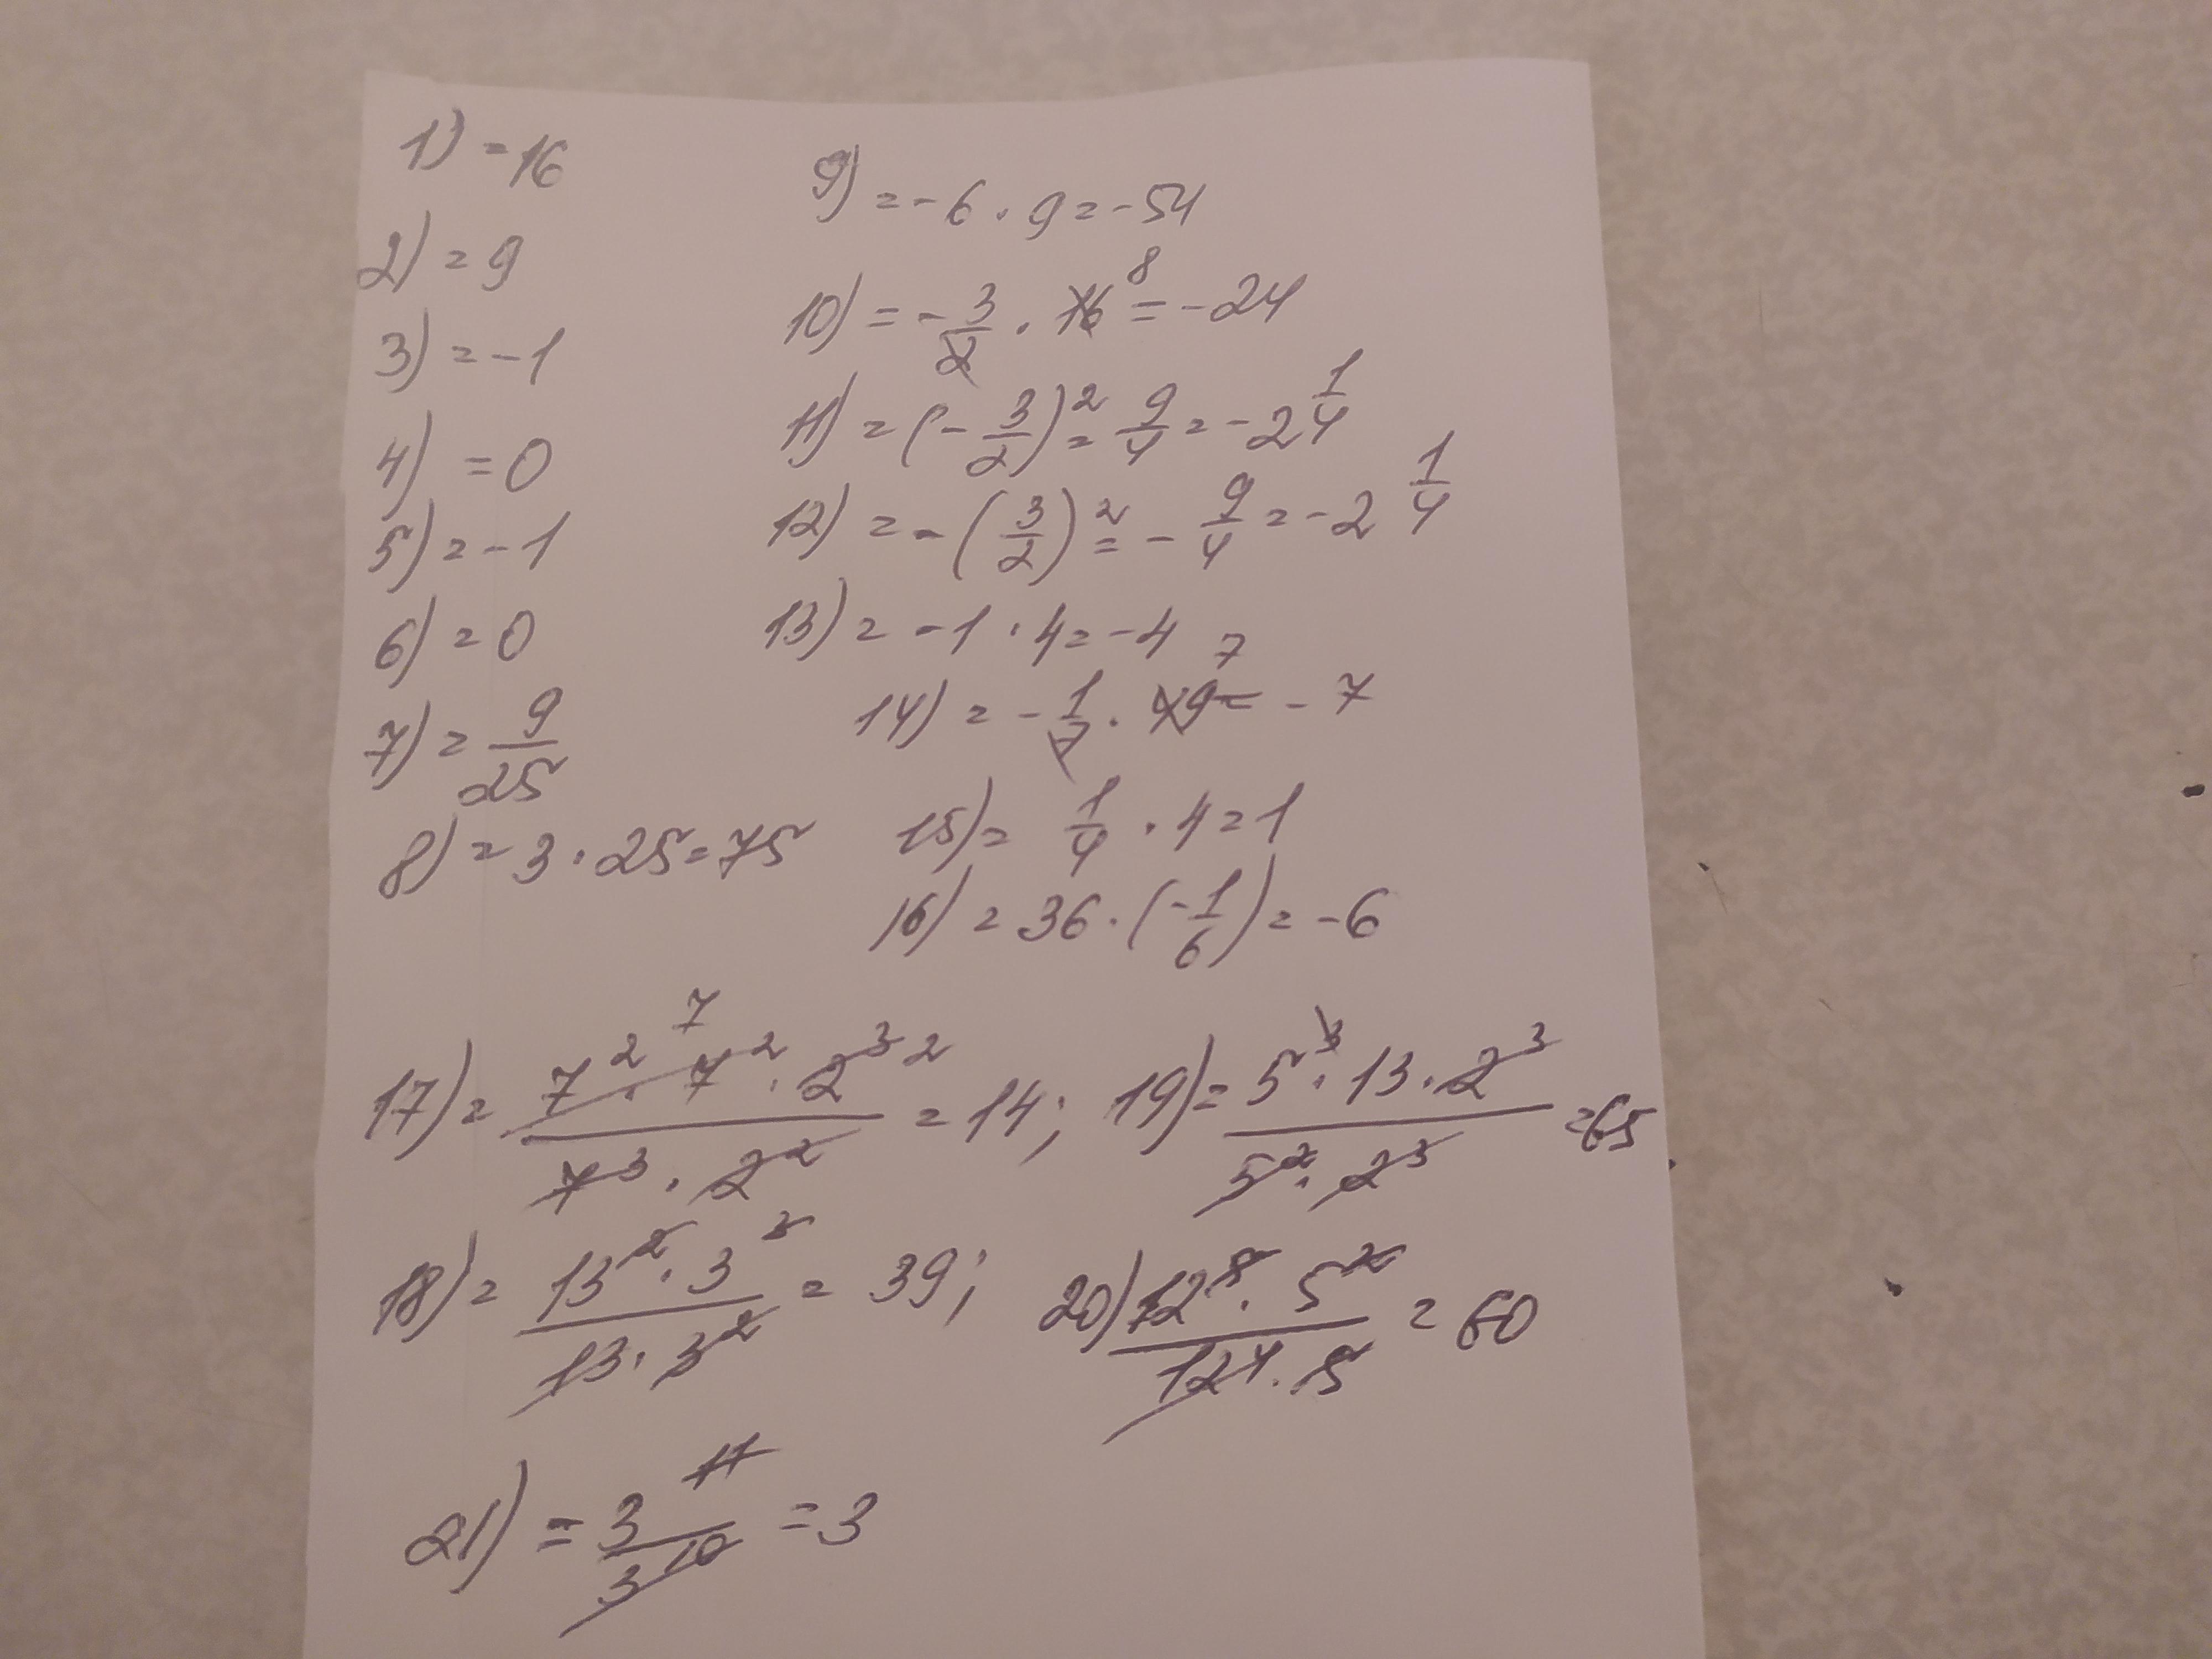 1) = 16
2) = 9
3) = -1
4) = 0
5) = -1
6) = 0
7) = 9/25
8) = 3 · 25 = 75
9) = -6 · 9 = -54
10) = -3/2 · 16 8 = -24
11) = (-3/2)² = 9/4 = -2 1/4
12) = -(3/2)² = -9/4 = -2 1/4
13) = -1 · 4 = -4
14) = -1/7 · 49 7 = -7
15) = 1/4 · 4 = 1
16) = 36 · (-1/6) = -6
17) = 7² · 7² 7 · 2³ 2 / 7³ · 2² = 14;
18) = 13² · 3³ / 13 · 3² = 39;
19) = 5³ · 13 · 2³ / 5² · 2³ = 65
20) 12⁸ · 5² / 12⁷ · 5 = 60
21) = 3¹¹ / 3¹⁰ = 3